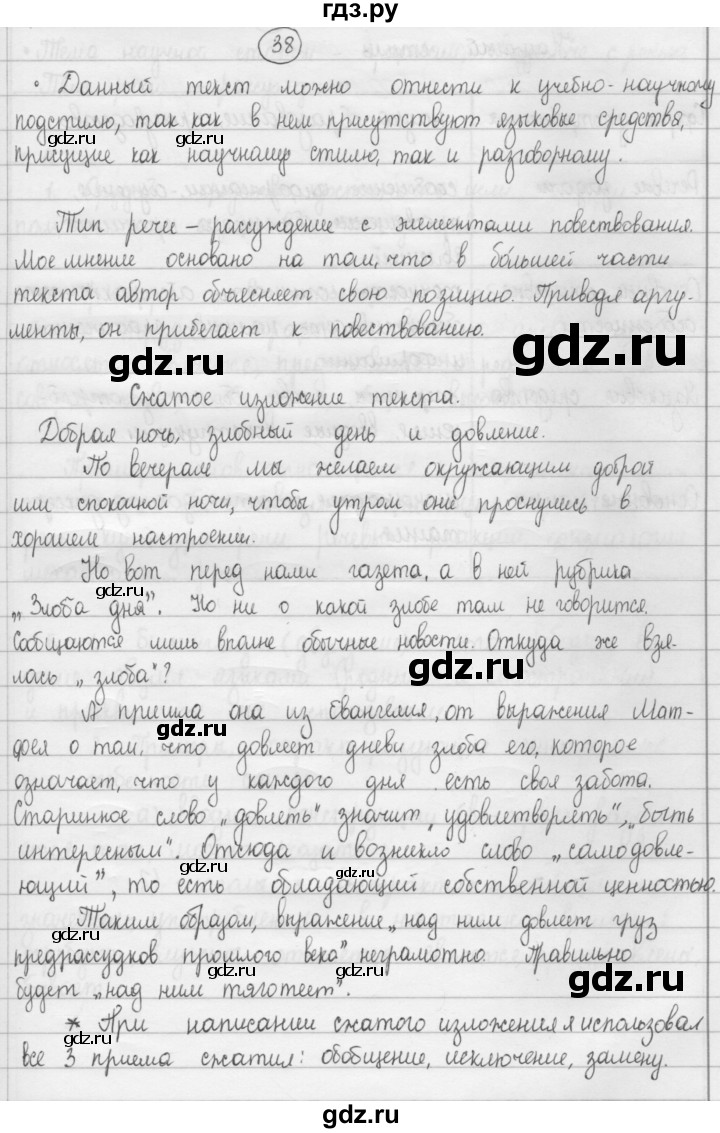 гдз.ру
38
• Данный текст можно отнести к учебно-научному
подстилю, так как в нем присутствуют языковые средства,
gdz.ru gdz.ru
присущие как научному стилю, так и разговорному.
Тип речи – рассуждение с элементами повествования.
Мое мнение основано на том, что в бо́льшей части
текста автор объясняет свою позицию. Приводя аргу-
менты, он прибегает к повествованию.
gdz.ru gdz.ru
Сжатое изложение текста.
Добрая ночь, злобный день и довление.
gdz.ru gdz.ru
По вечерам мы желаем окружающим доброй
или спокойной ночи, чтобы утром они проснулись в
хорошем настроении.
gdz.ru
Но вот перед нами газета, а в ней рубрика
„Злоба дня". Но ни о какой злобе там не говорится.
Сообщаются лишь вполне обычные новости. Откуда же взя-
лась „злоба"?
gdz.ru
А пришла она из Евангелия, от выражения Мат-
gdz.ru
фея о том, что довлеет дневи злоба его, которое
означает, что у каждого дня есть своя забота.
Старинное слово „довлеть" значит „удовлетворять", „быть
интересным". Отсюда и возникло слово „самодовле-
gdz.ru
ющий", то есть обладающий собственной ценностью.
gdz.ru
Таким образом, выражение „над ним довлеет груз
gdz.ru
предрассудков прошлого века" неграмотно. Правильно
gdz.ru gdz.ru
будет „над ним тяготеет".
* При написании сжатого изложения я использовал
gdz.ru
все 3 приема сжатия: обобщение, исключение, замену.
gdz.ru
gdz.ru